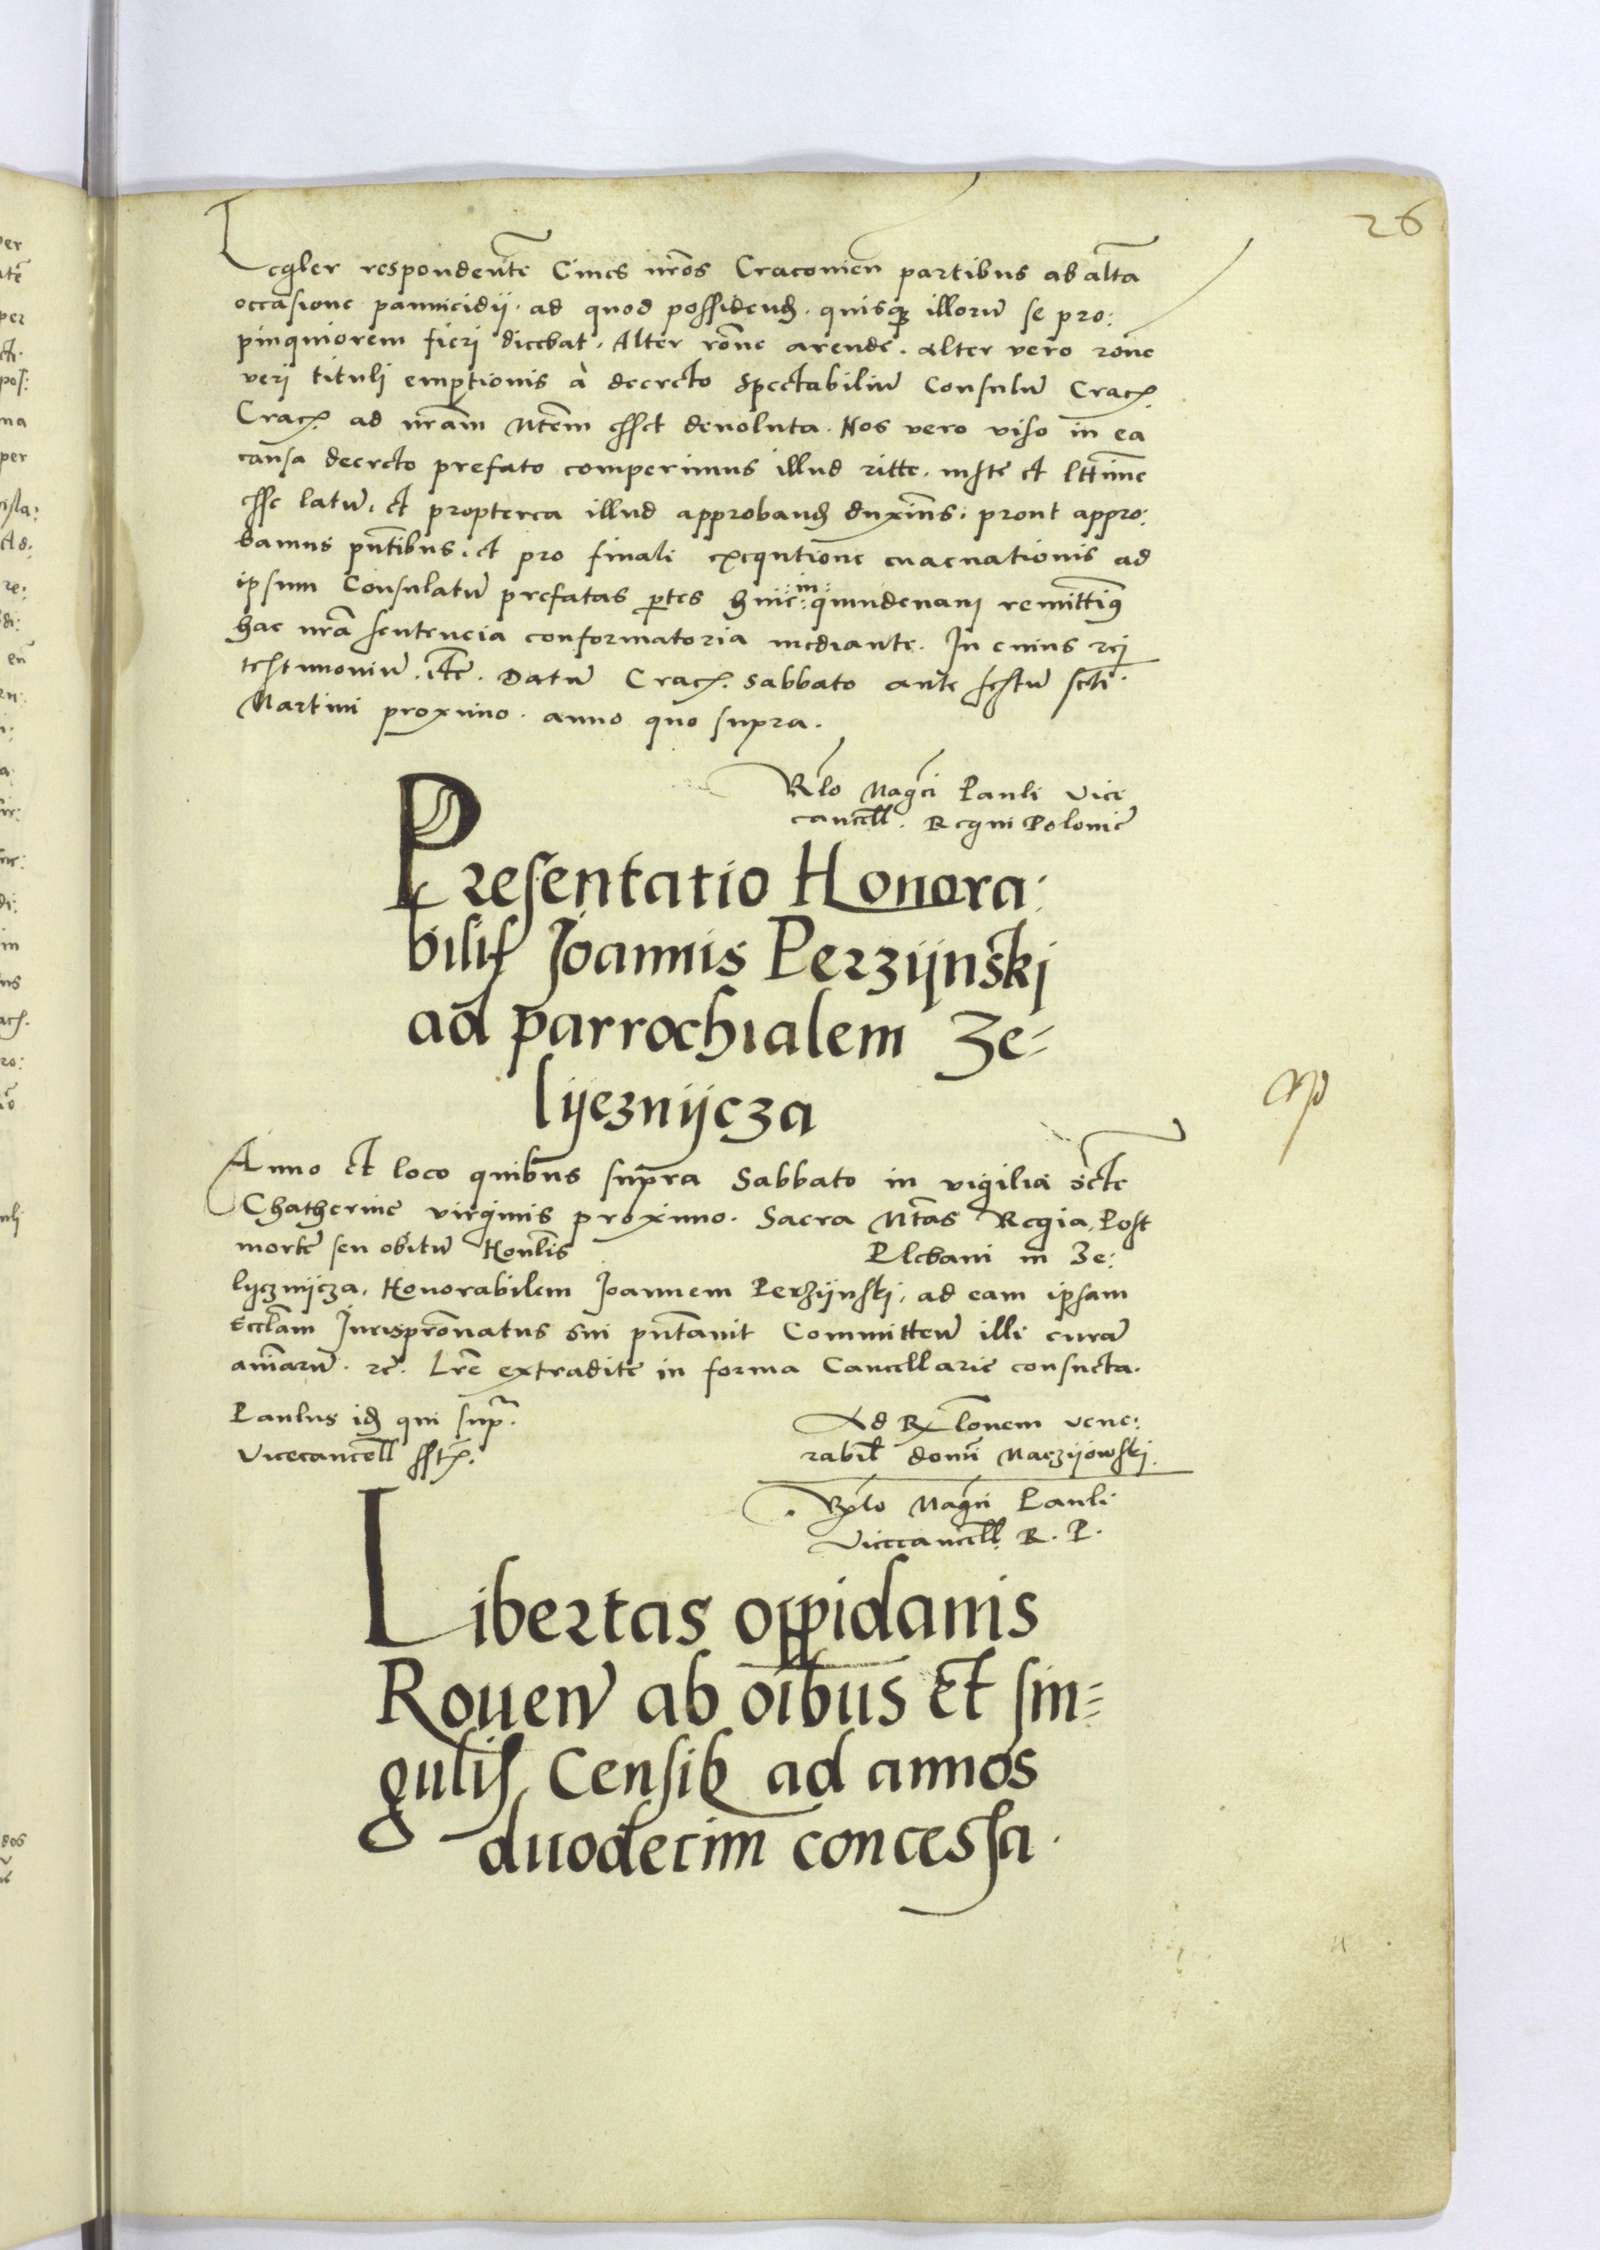 26
Legler respondentẽ Ciues nr̃os Cracouien̄ partibus ab altã
occasione pannicidij. ad quod possidend̃. quisq illorũ se pro:
pinquiorem fieri dicebat. Alter rõne arende. alter vero rõne
veri tituli emptionis à decreto Spectabiliũ Consulũ Crac̃.
Crac̃. ad nr̃am Mtẽm esset deuoluta. Nos vero viso in ea
causa decreto prefato comperimus illud ritte. iuste et lttĩme
esse latũ, et propterea illud approband̃ duxim̃s: prout appro:
bamus pñtibus, et pro finali exequtione euacuationis ad
ipsum Consulatũ prefatas ptes hinc :in: quindenam remittim9
hac nr̃a sentencia conformatoria mediante. In cuius rej
testimoniũ. etc̃. Datũ Crac̃. Sabbato ante festũ scti.
Martini proximo. anno quo supra.
Rlo Magci Pauli Vice
cancell. Regni Polonie
Presentatio Honora:
bilis Joannis Perzijnskj
ad parrochialem Ze=
lijeznijcza
Anno et loco quibus supra Sabbato in vigilia Scte
Chatherine virginis proximo. Sacra Mtas Regia, Post
mortẽ seu obitũ Honlis Plebani in Ze:
lyeznijcza, Honorabilem Joannem Perzijnskj, ad eam ipsam
Ecclãm Jurispronatus sui pñtauit Committeñ illi curã
aĩarũ. rc̃. Lrẽ extradite in forma Cancellarie consueta.
Paulus id̃ qui supr.
Vicecancell sst.
Ad Rlonem vene:
rabil domi Maczijowskj
Rlo Magci Pauli
Vicecancell R. P.
Libertas oppidanis
Rouen̄ ab oĩbus et sin=
gulis Censib ad annos
duodecim concessa.